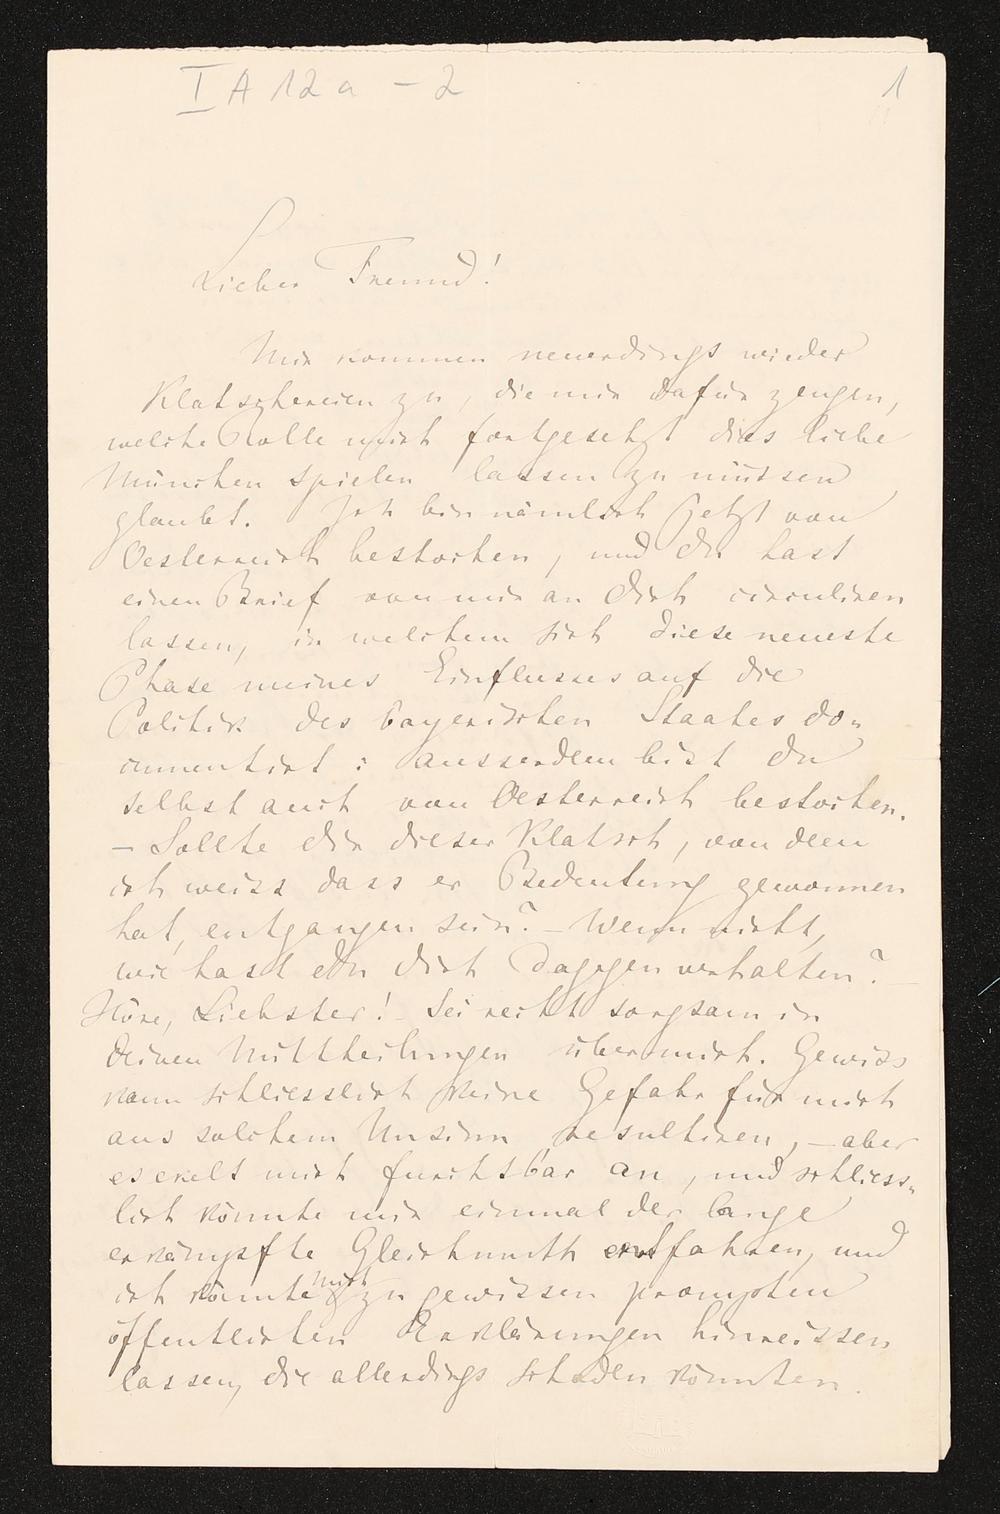 I A 12 a - 2
1
Lieber Freund!
Mir kommen neuerdings wieder
Klatschereien zu, die mir dafür zeugen,
welche Rolle mich fortgesetzt dies liebe
München spielen lassen zu müssen
glaubt. Ich bin nämlich jetzt von
Oesterreich bestochen, und du hast
einen Brief von mir an dich circuliren
lassen, in welchem sich diese neueste
Phase meines Einflusses auf die
Politik des bayerischen Staates do-
cumentirt: ausserdem bist du
selbst auch von Oesterreich bestochen.
– Sollte dir dieser Klatsch, von dem
ich weiss dass er Bedeutung gewonnen
hat, entgangen sein? – Wenn nicht,
wie hast du dich dagegen verhalten? –
Höre, Liebster! Sei recht sorgsam in
deinen Mittheilungen über mich. Gewiss
kann schliesslich keine Gefahr für mich
aus solchem Unsinn resultiren, – aber
es ekelt mich furchtbar an, und schliess-
lich könnte mir einmal der lange
erkämpfte Gleichmuth entfahren, und
ich könnte mich zu gewissen prompten
öffentlichen Erklärungen hinreissen
lassen, die allerdings schaden könnten.